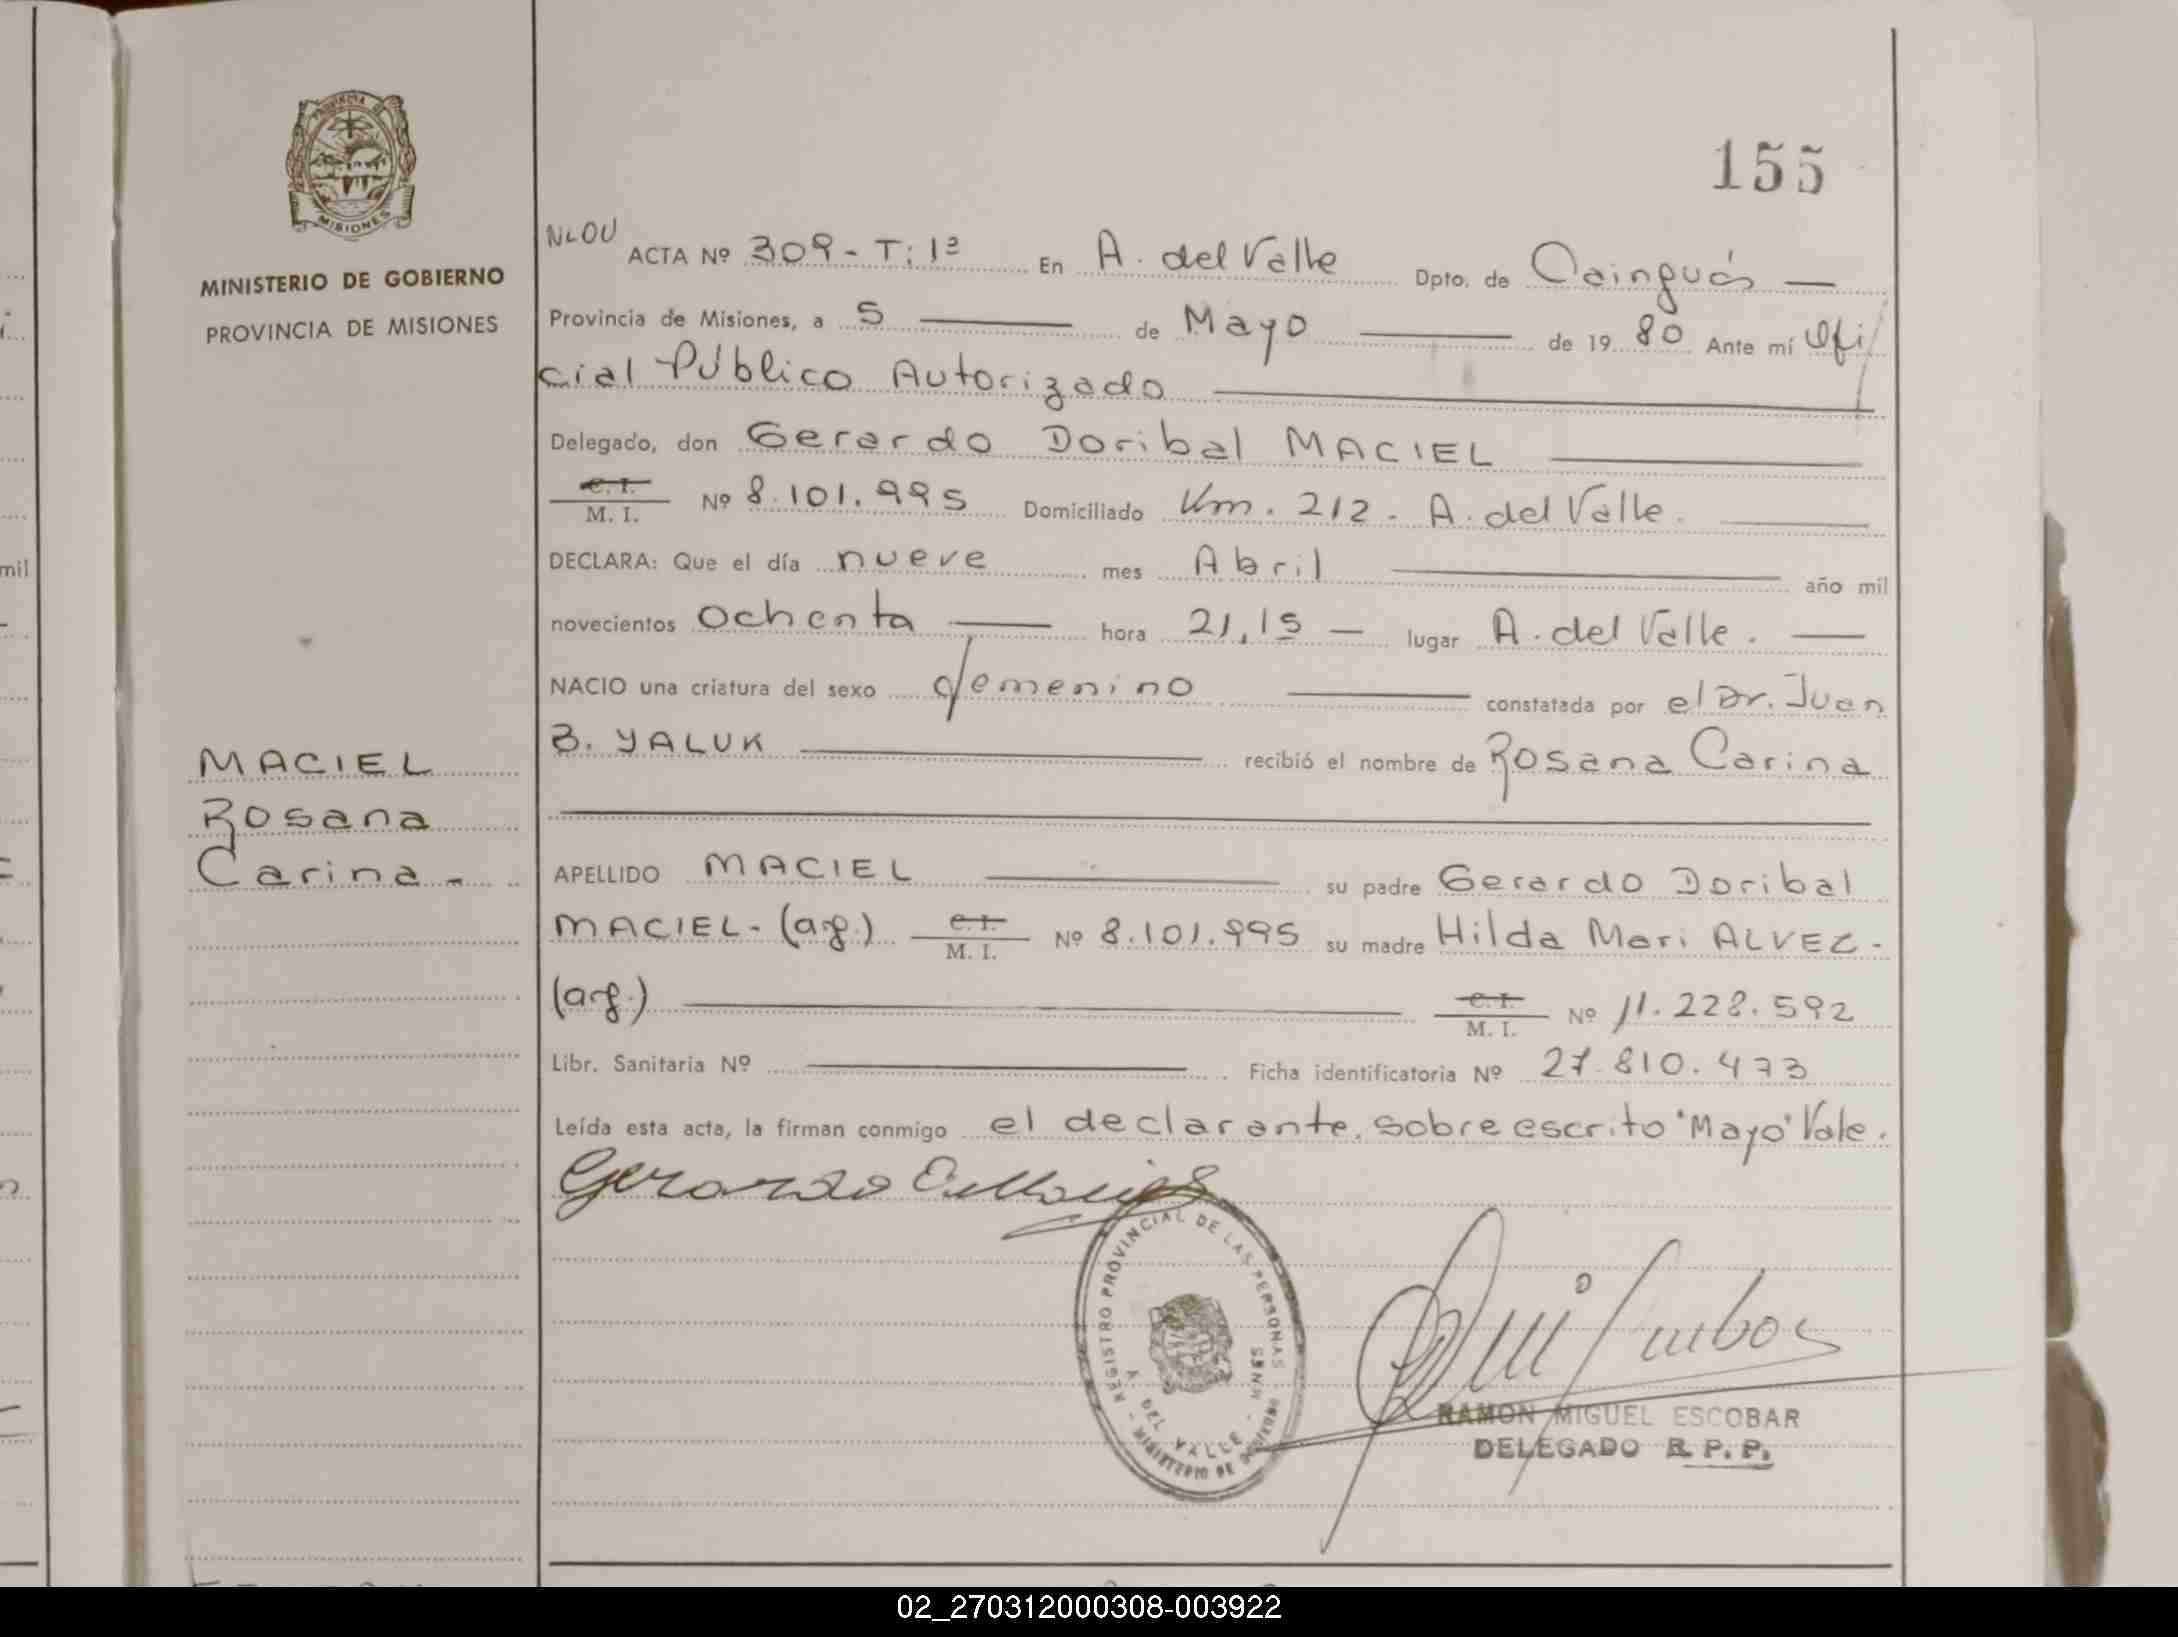 155
MINISTERIO DE GOBIERNO
PROVINCIA DE MISIONES
MISIONES
MACIEL
Rosana
Carina -
ACTA Nº 309 - T: 1ª En A. del Valle Dpto. de Cainguás
Provincia de Misiones, a 5 de Mayo de 1980 Ante mí Ofi
cial Público Autorizado
Delegado, don Gerardo Doribal MACIEL
C. I.
M. I. Nº 8.101.995 Domiciliado Km. 212 - A. del Valle.
DECLARA: Que el día nueve mes Abril año mil
novecientos ochenta hora 21,15 lugar A. del Valle.
NACIO una criatura del sexo femenino constatada por el Dr. Juan
B. YALUK recibió el nombre de Rosana Carina
APELLIDO MACIEL su padre Gerardo Doribal
MACIEL - (arg.) C. I. M. I. Nº 8.101.995 su madre Hilda Mari ALVEZ -
(arg.) C. I. M. I. Nº 11.228.592
Libr. Sanitaria Nº Ficha identificatoria Nº 27.810.473
Leída esta acta, la firman conmigo el declarante, sobreescrito "Mayo" Vale.
REGISTRO PROVINCIAL DE LAS PERSONAS
A. DEL VALLE - MNES
MINISTERIO DE GOBIERNO
RAMON MIGUEL ESCOBAR
DELEGADO R. P. P.
02_270312000308-003922